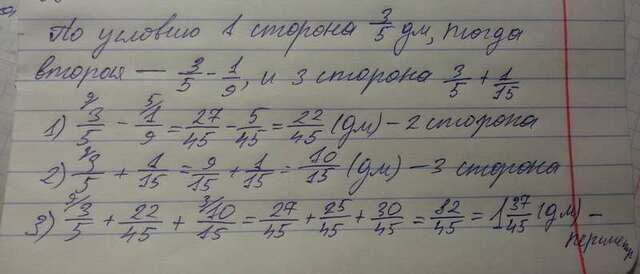 По условию 1 сторона 3/5 дм, тогда
вторая — 3/5 - 1/9, и 3 сторона 3/5 + 1/15
1) 9/ 3/5 - 5/ 1/9 = 27/45 - 5/45 = 22/45 (дм) - 2 сторона
2) 3/ 3/5 + 1/15 = 9/15 + 1/15 = 10/15 (дм) - 3 сторона
3) 9/ 3/5 + 22/45 + 3/ 10/15 = 27/45 + 25/45 + 30/45 = 82/45 = 1 37/45 (дм) -
периметр